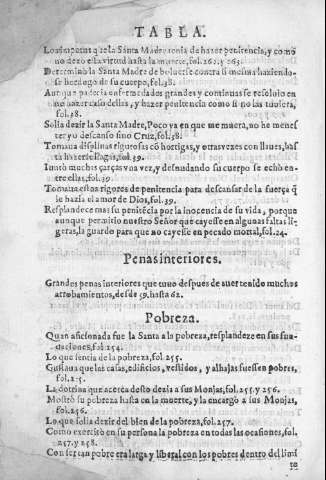 TABLA.
Los impetus q̃ tenia la Santa Madre tenia de hazer penitencia, y como
no dexo esta virtud hasta la muerte, fol. 262. y 263.
Determinò la Santa Madre de boluerse contra si mesma haziendo-
se de su cuerpo, fol. 38.
Aunque padecia enfermedades grandes y continuas se resoluio en
no hazer caso dellas, y hazer penitencia como si no las tuuiera,
fol. 38.
Solia dezir la Santa Madre, Poco va en que me muera, no he menes
ter yo descanso sino Cruz, fol. 38.
Tomaua disciplinas rigurosas cõ hortigas, y otras vezes con llaues, has
ta hazerse llagas, fol. 39.
Iuntò muchas çarças vna vez, y desnudando su cuerpo se echò en-
tre ellas, fol. 39.
Tomaua estos rigores de penitencia para descansar de la fuerça q̃
le hazia el amor de Dios, fol. 39.
Resplandece mas su penitẽcia por la inocencia de su vida, porque
aunque permitio nuestro Señor que cayesse en algunas faltas li-
geras, la guardo para que no cayesse en pecado mortal, fol. 24.
Penas interiores.
Grandes penas interiores que tuuo despues de auer tenido muchos
arrobamientos, desde 59. hasta 62.
Pobreza.
Quan aficionada fue la Santa a la pobreza, resplandeze en sus fun-
daciones, fol. 254.
Lo que sentia de la pobreza, fol. 255.
Gustaua que las casas, edificios, vestidos, y alhajas fuessen pobres,
fol.
La dotrina que acerca desto dexò a sus Monjas, fol. 255. y 256.
Mostrò su pobreza hasta en la muerte, y la encargò a sus Monjas,
fol. 256.
Lo que solia dezir del bien de la pobreza, fol. 257.
Como exercitò en su persona la pobreza en todas las ocasiones, fol.
257. y 258.
Con ser tan pobre era larga y liberal con los pobres dentro del limi